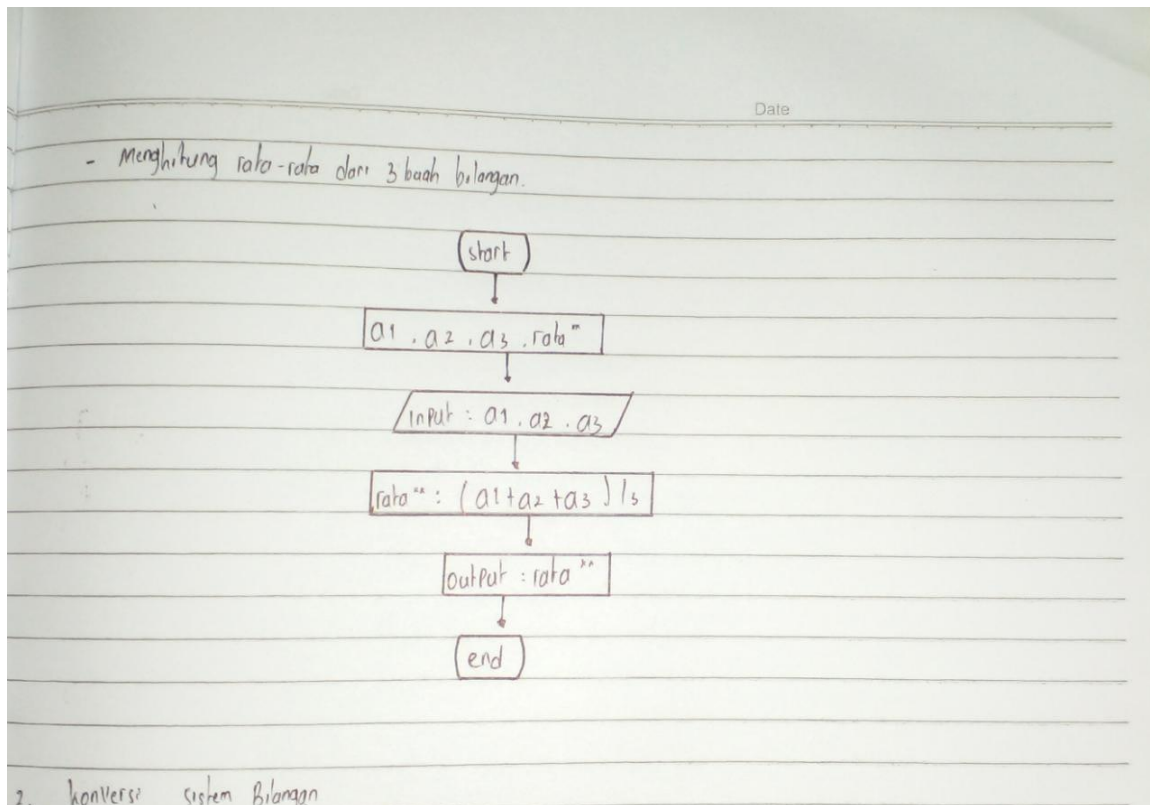 Date
- Menghitung rata-rata dari 3 buah bilangan.
start
a1, a2, a3, rata"
input : a1, a2, a3
rata" : (a1+a2+a3)/3
output : rata"
end
2. konversi sistem Bilangan